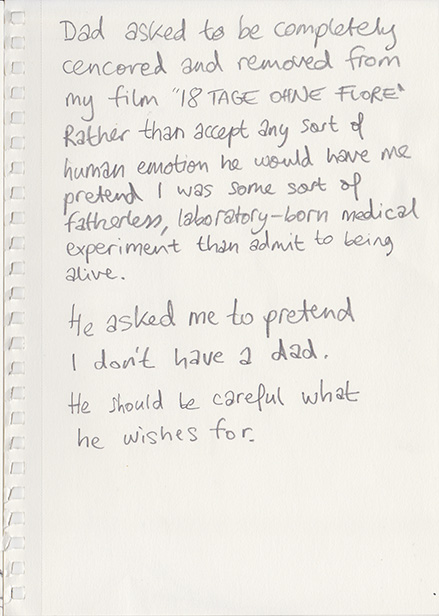 Dad asked to be completely
cencored and removed from
my film "18 TAGE OHNE FLORE"
Rather than accept any sort of
human emotion he would have me
pretend I was some sort of
fatherless, laboratory-born medical
experiment than admit to being
alive.
He asked me to pretend
I don't have a dad.
He should be careful what
he wishes for.